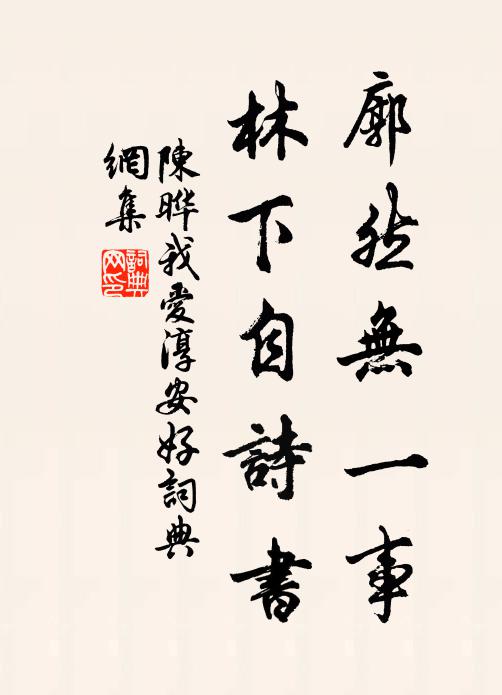 廓然無一事
林下自詩書
陳曄我愛淳安好詞典
網集
詞典
网印